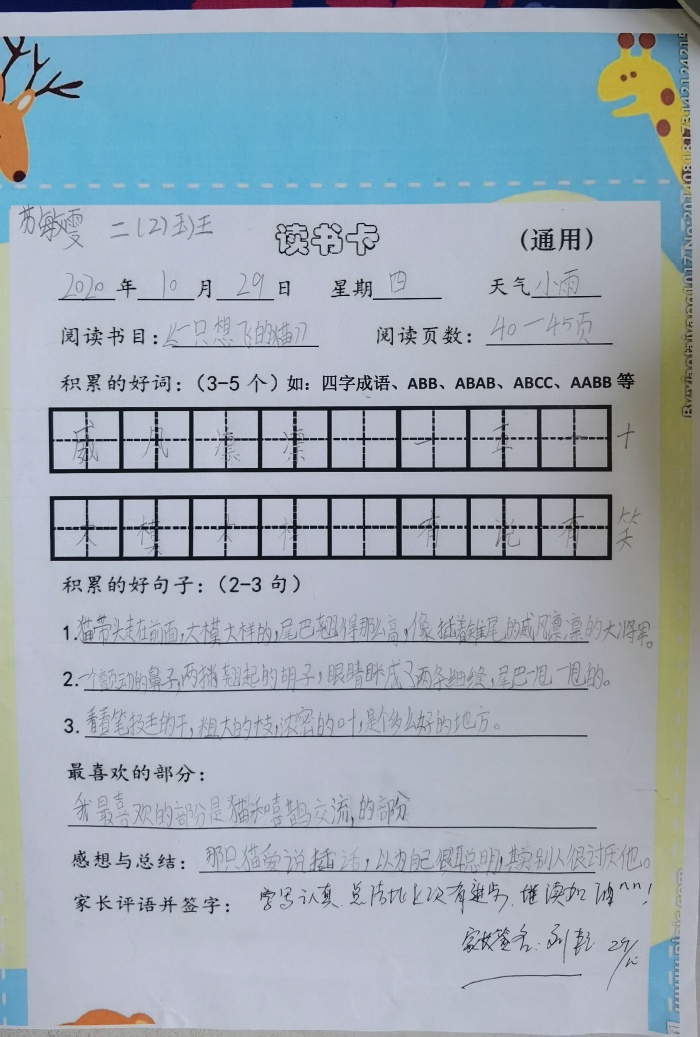 苏敏雯 二(2)班
读书卡 (通用)
2020年10月29日 星期四 天气小雨
阅读书目:《一只想飞的猫》 阅读页数:40—45页
积累的好词:(3-5个)如:四字成语、ABB、ABAB、ABCC、AABB等
威风凛凛 一五一十
大模大样 有说有笑
积累的好句子:(2-3句)
1.猫带头走在前面,大模大样的,尾巴翘得那么高,像插着雉尾的威风凛凛的大将军。
2.一个颤动的鼻子,两撇翘起的胡子,眼睛眯成了两条细缝,尾巴一甩一甩的。
3.看看笔挺的干,粗大的枝,浓密的叶,是个多么好的地方。
最喜欢的部分:
我最喜欢的部分是猫和喜鹊交流,的部分
感想与总结:那只猫爱说插话,以为自己很聪明,其实别人很讨厌他。
家长评语并签字:字写认真,总结比上次有进步,继续加油^^!
家长签名: